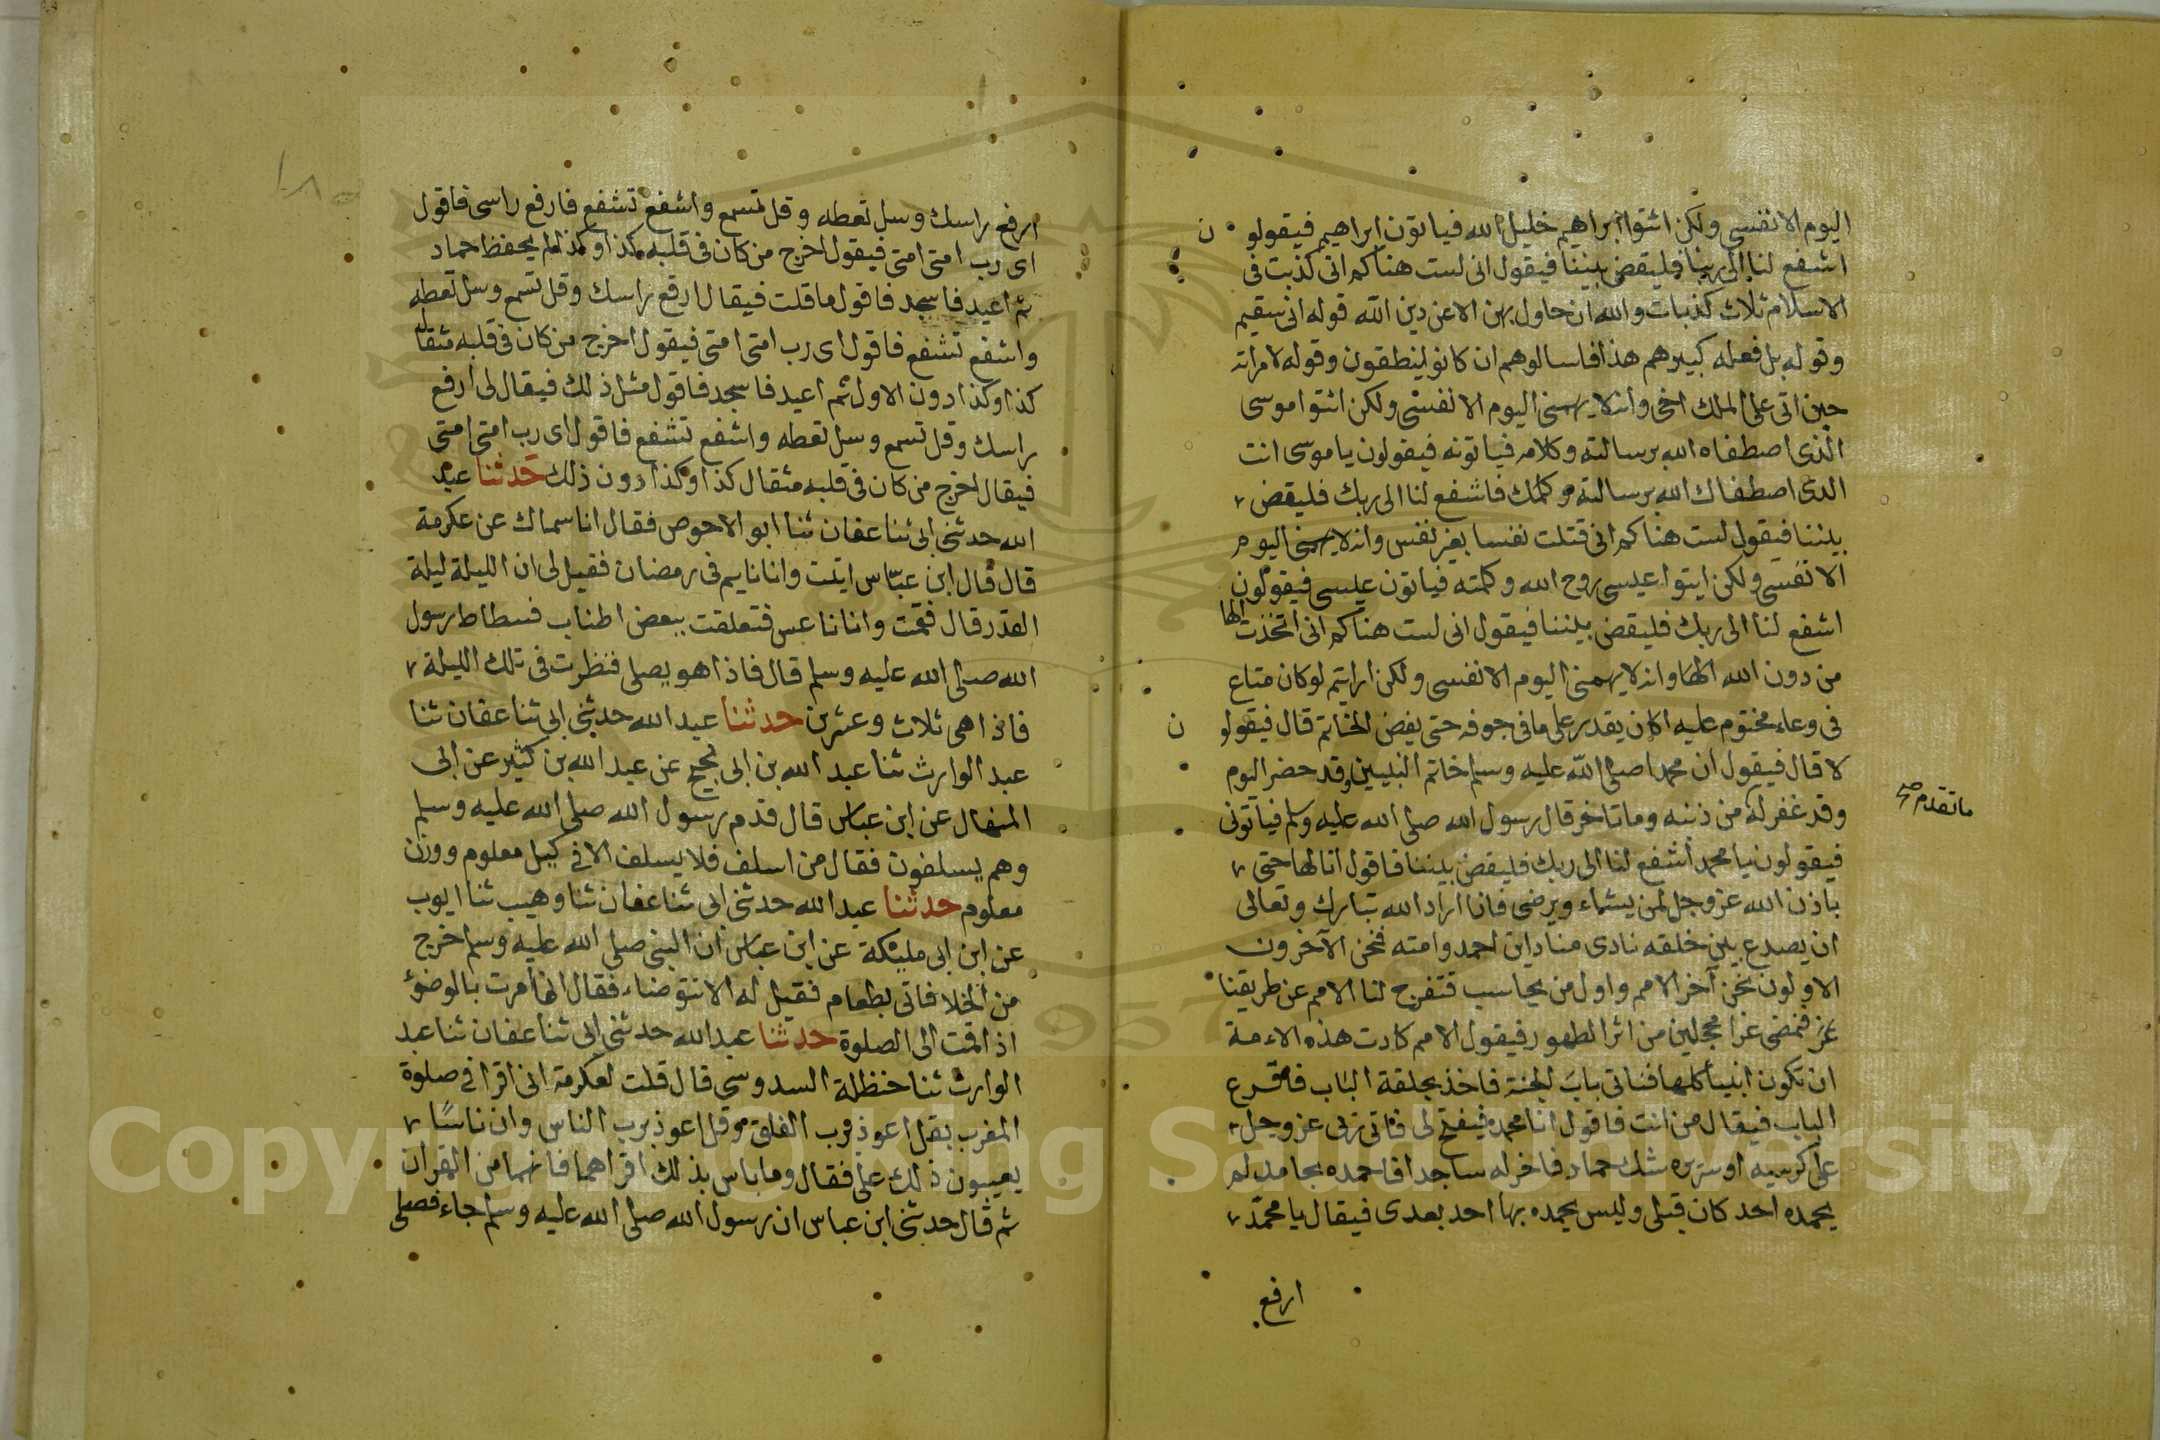 اليوم الا نفسي ولكن ائتوا ابراهيم خليل الله فياتون ابراهيم فيقولو ن
اشفع لنا الى ربنا فليقض بيننا فيقول انى لست هناكم انى كذبت فى
الاسلام ثلاث كذبات والله ان حاول بهن الا عن دين الله قوله انى سقيم
وقوله بل فعله كبيرهم هذا فاسالوهم ان كانو اينطقون وقوله لامراته
حين اتى على الملك اخى وانه لا يهمنى اليوم الا نفسى ولكن ائتوا موسى
الذى اصطفاه الله برسالته وكلامه فياتونه فيقولون يا موسى انت
الذى اصطفاك الله برسالته وكلمك فاشفع لنا الى ربك فليقض
بيننا فيقول لست هناكم انى قتلت نفسا بغير نفس وانه لا يهمنى اليوم
الا نفسى ولكن ايتوا عيسى روح الله وكلمته فياتون عيسى فيقولون
اشفع لنا الى ربك فليقض بيننا فيقول انى لست هناكم انى اتخذت الها
من دون الله الها وانه لا يهمنى اليوم الا نفسى ولكن ارايتم لو كان متاع
فى وعاء مختوم عليه اكان يقدر على ما فى جوفه حتى يفض الخاتم قال فيقولو ن
لا قال فيقول ان محمدا صلى الله عليه وسلم خاتم النبيين وقد حضر اليوم
وقد غفر له من ذنبه وما تاخر قال رسول الله صلى الله عليه وسلم فياتونى
ما تقدم صح
فيقولون يا محمد اشفع لنا الى ربك فليقض بيننا فاقول انا لها حتى
ياذن الله عز وجل لمن يشاء ويرضى فاذا اراد الله تبارك وتعالى
ان يصدع بين خلقه نادى مناد اين احمد وامته فنحن الآخرون
الاولون نحن آخر الامم واول من يحاسب فتفرج لنا الامم عن طريقنا
فنمضى غرا محجلين من اثر الطهور فيقول الامم كادت هذه الامة
ان تكون انبياء كلها فناتى باب الجنة فاخذ بحلقة الباب فاقرع
الباب فيقال من انت فاقول انا محمد فيفتح لى فاتى ربى عز وجل
على كرسيه او سريره شك حماد فاخر له ساجدا فاحمده بمحامد لم
يحمده احد كان قبلى وليس يحمده بها احد بعدى فيقال يا محمد
ارفع
ارفع راسك وسل تعطه وقل تسمع واشفع تشفع فارفع راسى فاقول
اى رب امتى امتى فيقول اخرج من كان فى قلبه كذا وكذا لم يحفظ حماد
ثم اعيد فاسجد فاقول ما قلت فيقال ارفع راسك وقل تسمع وسل تعطه
واشفع تشفع فاقول اى رب امتى امتى فيقول اخرج من كان فى قلبه مثقال
كذا وكذا دون الاول ثم اعيد فاسجد فاقول مثل ذلك فيقال لى ارفع
راسك وقل تسمع وسل تعطه واشفع تشفع فاقول اى رب امتى امتى
فيقال اخرج من كان فى قلبه مثقال كذا وكذا دون ذلك حدثنا عبد
الله حدثنى ابى ثنا عفان ثنا ابو الاحوص فقال انا سماك عن عكرمة
قال قال ابن عباس اتيت وانا نايم فى رمضان فقيل لى ان الليلة ليلة
القدر قال فقمت وانا ناعس فتعلقت ببعض اطناب فسطاط رسول
الله صلى الله عليه وسلم قال فاذا هو يصلى فنظرت فى تلك الليلة
فاذا هى ثلاث وعشرين حدثنا عبد الله حدثنى ابى ثنا عفان ثنا
عبد الوارث ثنا عبد الله بن ابى نجيح عن عبد الله بن كثير عن ابى
المنهال عن ابن عباس قال قدم رسول الله صلى الله عليه وسلم
وهم يسلفون فقال من اسلف فلا يسلف الا فى كيل معلوم ووزن
معلوم حدثنا عبد الله حدثنى ابى ثنا عفان ثنا وهيب ثنا ايوب
عن ابن ابى مليكة عن ابن عباس ان النبى صلى الله عليه وسلم خرج
من الخلا فاتى بطعام فقيل له الا نتوضاء فقال انما امرت بالوضوء
اذا قمت الى الصلوة حدثنا عبد الله حدثنى ابى ثنا عفان ثنا عبد
الوارث ثنا حنظلة السدوسى قال قلت لعكرمة انى اقرا فى صلوة
المغرب بقل اعوذ برب الفلق وقل اعوذ برب الناس وان ناسًا
يعيبون ذلك على فقال وما باس بذلك اقراهما فانهما من القران
ثم قال حدثنى ابن عباس ان رسول الله صلى الله عليه وسلم جاء فصلى
Copyright © King Saud University
1957